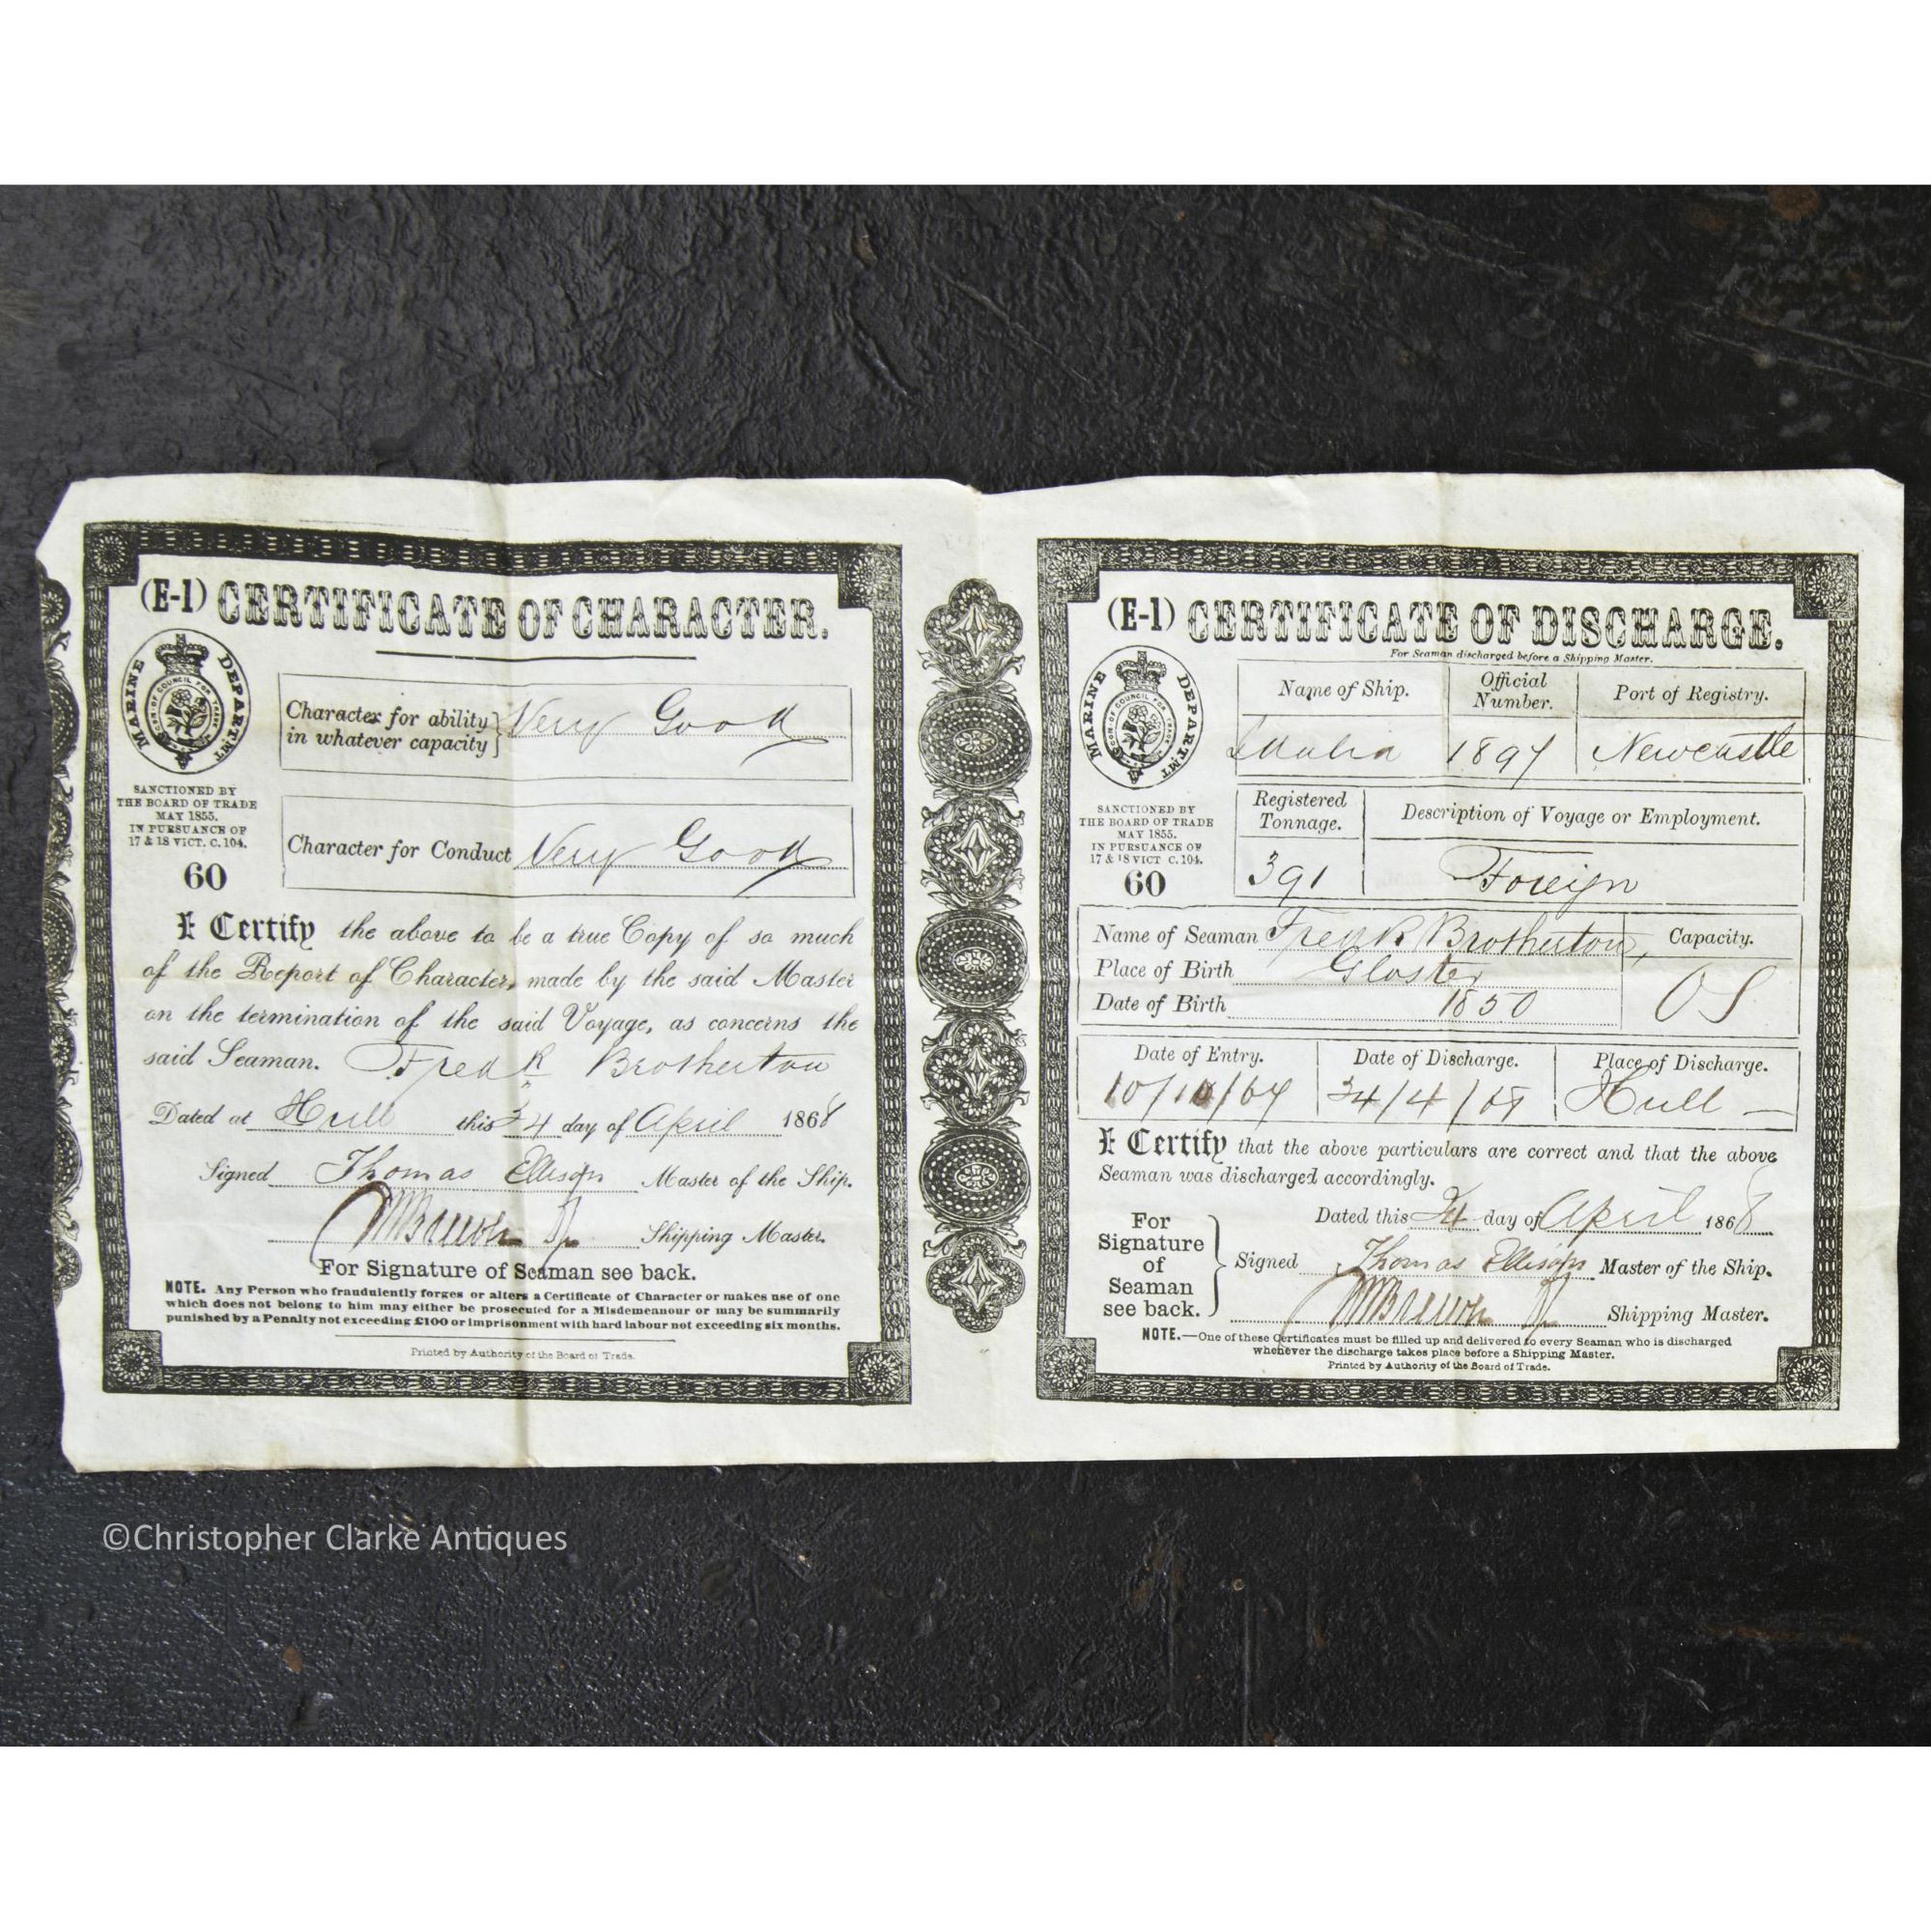 (E-1) CERTIFICATE OF CHARACTER.
MARINE DEPARTMT
SANCTIONED BY
THE BOARD OF TRADE
MAY 1855.
IN PURSUANCE OF
17 & 18 VICT. C. 104.
60
Character for ability
in whatever capacity } Very Good
Character for Conduct Very Good
I Certify the above to be a true Copy of so much
of the Report of Character, made by the said Master
on the termination of the said Voyage, as concerns the
said Seaman. Fredk Brotherton
Dated at Hull this 24 day of April 1868
Signed Thomas Ellison Master of the Ship.
Shipping Master.
For Signature of Seaman see back.
NOTE. Any Person who fraudulently forges or alters a Certificate of Character or makes use of one
which does not belong to him may either be prosecuted for a Misdemeanour or may be summarily
punished by a Penalty not exceeding £100 or imprisonment with hard labour not exceeding six months.
Printed by Authority of the Board of Trade.
(E-1) CERTIFICATE OF DISCHARGE.
For Seaman discharged before a Shipping Master.
MARINE DEPARTMT
SANCTIONED BY
THE BOARD OF TRADE
MAY 1855.
IN PURSUANCE OF
17 & 18 VICT C. 104.
60
Name of Ship. Official Number. Port of Registry.
Idalia 1897 Newcastle
Registered Tonnage. Description of Voyage or Employment.
391 Foreign
Name of Seaman Fredk Brotherton, Capacity.
Place of Birth Gloster
Date of Birth 1850 OS
Date of Entry. Date of Discharge. Place of Discharge.
24/4/68 Hull
I Certify that the above particulars are correct and that the above
Seaman was discharged accordingly.
Dated this 24 day of April 1868
For
Signature
of
Seaman
see back. }
Signed Thomas Ellison Master of the Ship.
Shipping Master.
NOTE.—One of these Certificates must be filled up and delivered to every Seaman who is discharged
whenever the discharge takes place before a Shipping Master.
Printed by Authority of the Board of Trade.
©Christopher Clarke Antiques